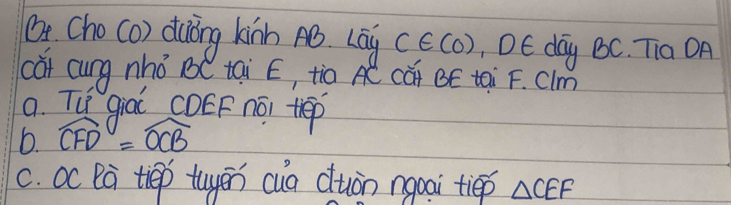 Bt. Cho (O) đường kính AB. Lấy C ∈ (O), D ∈ dây BC. Tia DA
cắt cung nhỏ BC tại E, tia AC cắt BE tại F. C/m
a. Tứ giác CDEF nội tiếp
b. \widehat{CFD} = \widehat{OCB}
c. OC là tiếp tuyến của đtròn ngoại tiếp △CEF